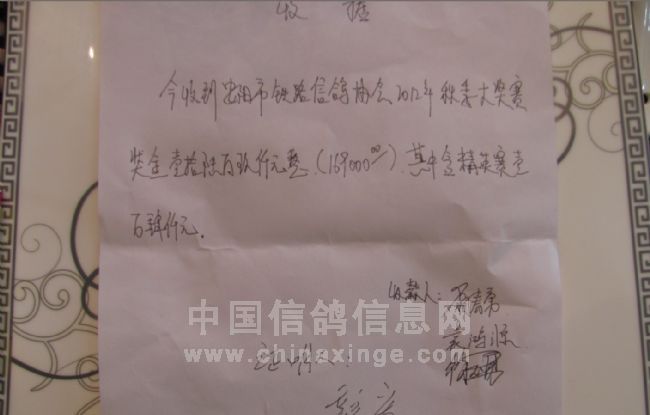 收据
今收到沈阳市铁路信鸽协会2012年秋季大奖赛
奖金壹拾陆万玖仟元整(169000.00).其中含精英赛壹
万 仟元.
收款人:
中国信鸽信息网
www.chinaxinge.com
证明人: